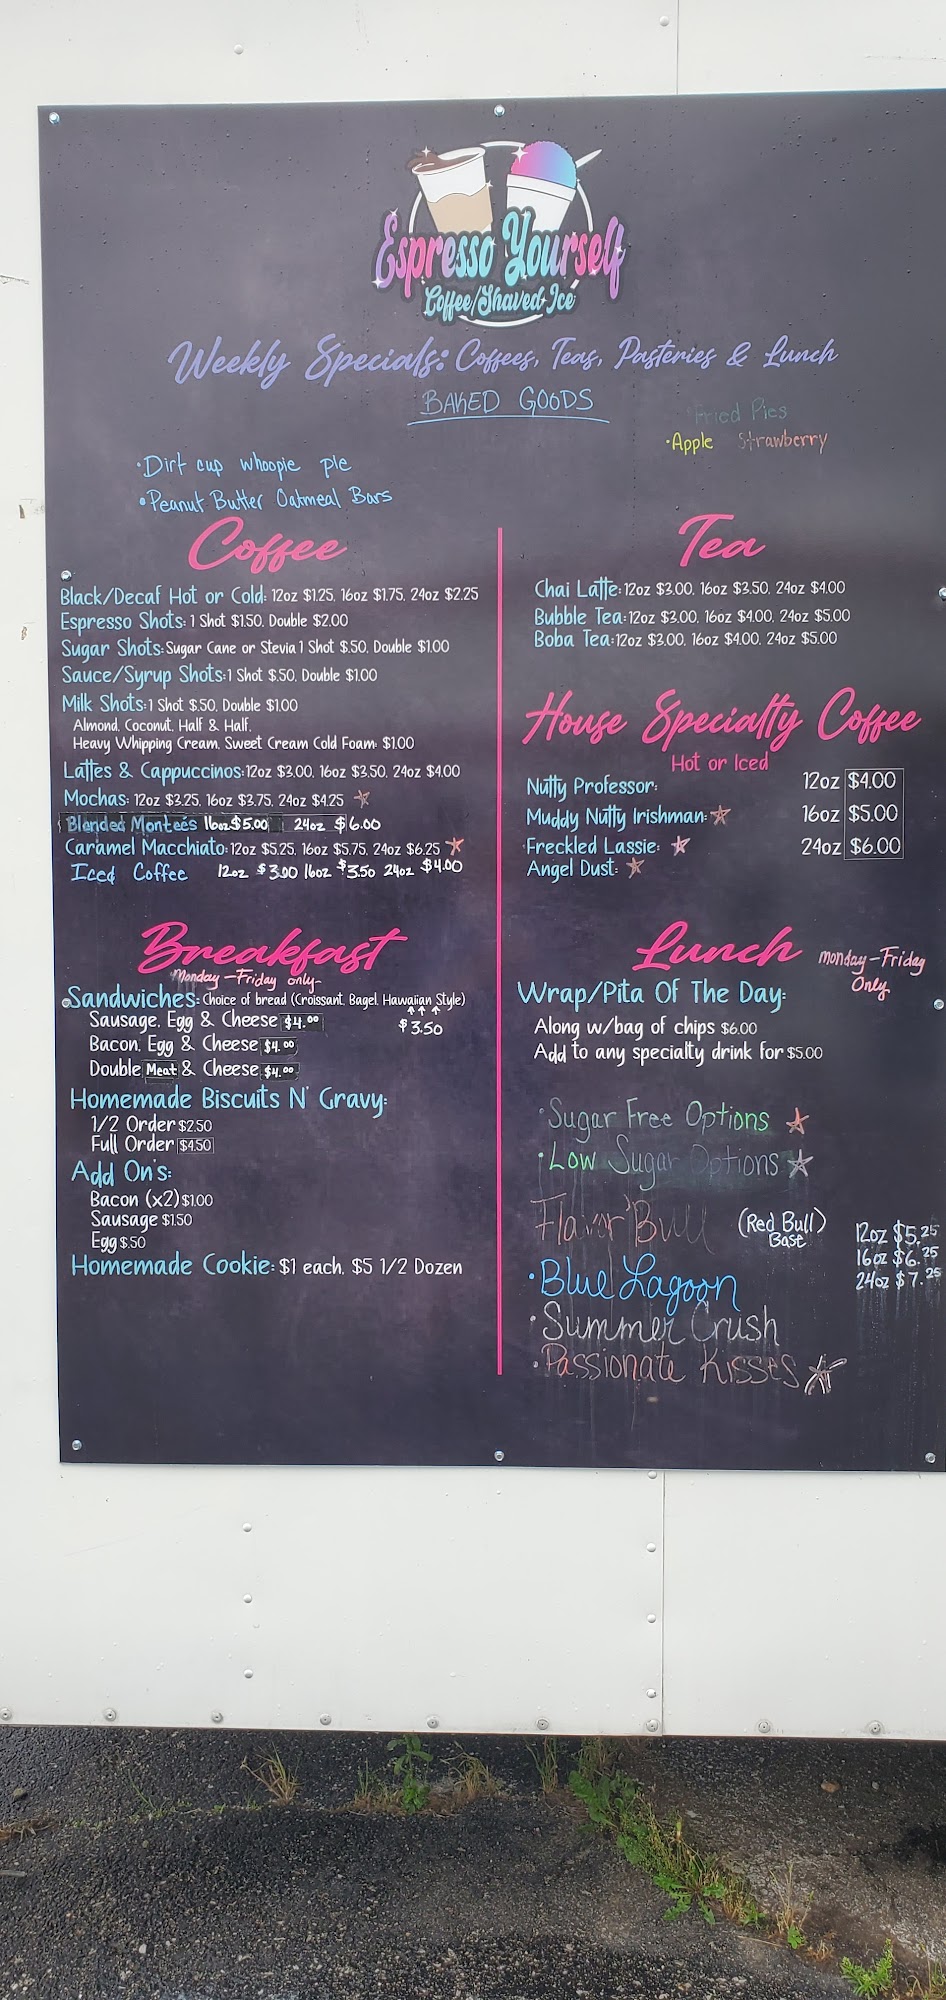 Espresso Yourself
Coffee/Shaved Ice
Weekly Specials: Coffees, Teas, Pasteries & Lunch
BAKED GOODS
Fried Pies
•Apple Strawberry
•Dirt cup whoopie pie
•Peanut Butter Oatmeal Bars
Coffee
Black/Decaf Hot or Cold: 12oz $1.25, 16oz $1.75, 24oz $2.25
Espresso Shots: 1 Shot $1.50, Double $2.00
Sugar Shots: Sugar Cane or Stevia 1 Shot $.50, Double $1.00
Sauce/Syrup Shots: 1 Shot $.50, Double $1.00
Milk Shots: 1 Shot $.50, Double $1.00
Almond, Coconut, Half & Half,
Heavy Whipping Cream, Sweet Cream Cold Foam: $1.00
Lattes & Cappuccinos: 12oz $3.00, 16oz $3.50, 24oz $4.00
Mochas: 12oz $3.25, 16oz $3.75, 24oz $4.25
Blended Montees 16oz $5.00 24oz $6.00
Caramel Macchiato: 12oz $5.25, 16oz $5.75, 24oz $6.25
Iced Coffee 12oz $3.00 16oz $3.50 24oz $4.00
Tea
Chai Latte: 12oz $3.00, 16oz $3.50, 24oz $4.00
Bubble Tea: 12oz $3.00, 16oz $4.00, 24oz $5.00
Boba Tea: 12oz $3.00, 16oz $4.00, 24oz $5.00
House Specialty Coffee
Hot or Iced
Nutty Professor: 12oz $4.00
Muddy Nutty Irishman: 16oz $5.00
Freckled Lassie: 24oz $6.00
Angel Dust:
Breakfast
Monday-Friday only
Sandwiches: Choice of bread (Croissant, Bagel, Hawaiian Style)
Sausage, Egg & Cheese $4.00 $3.50
Bacon, Egg & Cheese $4.00
Double Meat & Cheese $4.00
Homemade Biscuits N' Gravy:
1/2 Order $2.50
Full Order $4.50
Add On's:
Bacon (x2) $1.00
Sausage $1.50
Egg $.50
Homemade Cookie: $1 each, $5 1/2 Dozen
Lunch
monday-Friday
Only
Wrap/Pita Of The Day:
Along w/bag of chips $6.00
Add to any specialty drink for $5.00
•Sugar Free Options
•Low Sugar Options
Flavor'Bull (Red Bull)
Base
12oz $5.25
16oz $6.25
24oz $7.25
•Blue Lagoon
•Summer Crush
•Passionate Kisses